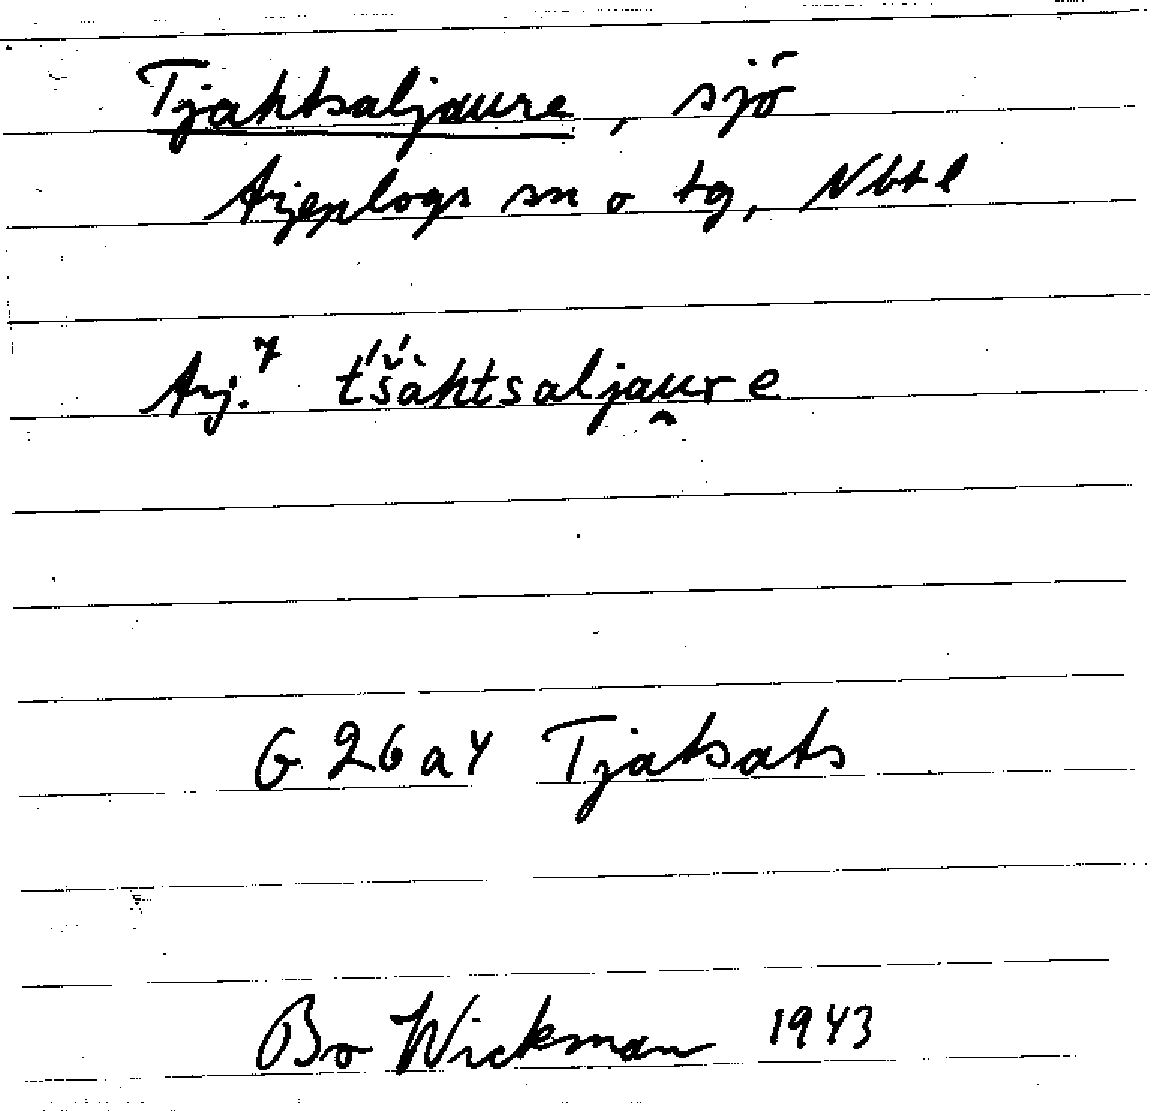 Tjahtsaljaure, sjö
Arjeplogs sn o tg, Nbtl
Arj.7 t́šàhtsaljau̯re
G 26 a 4 Tjatsats
Bo Wickman 1943